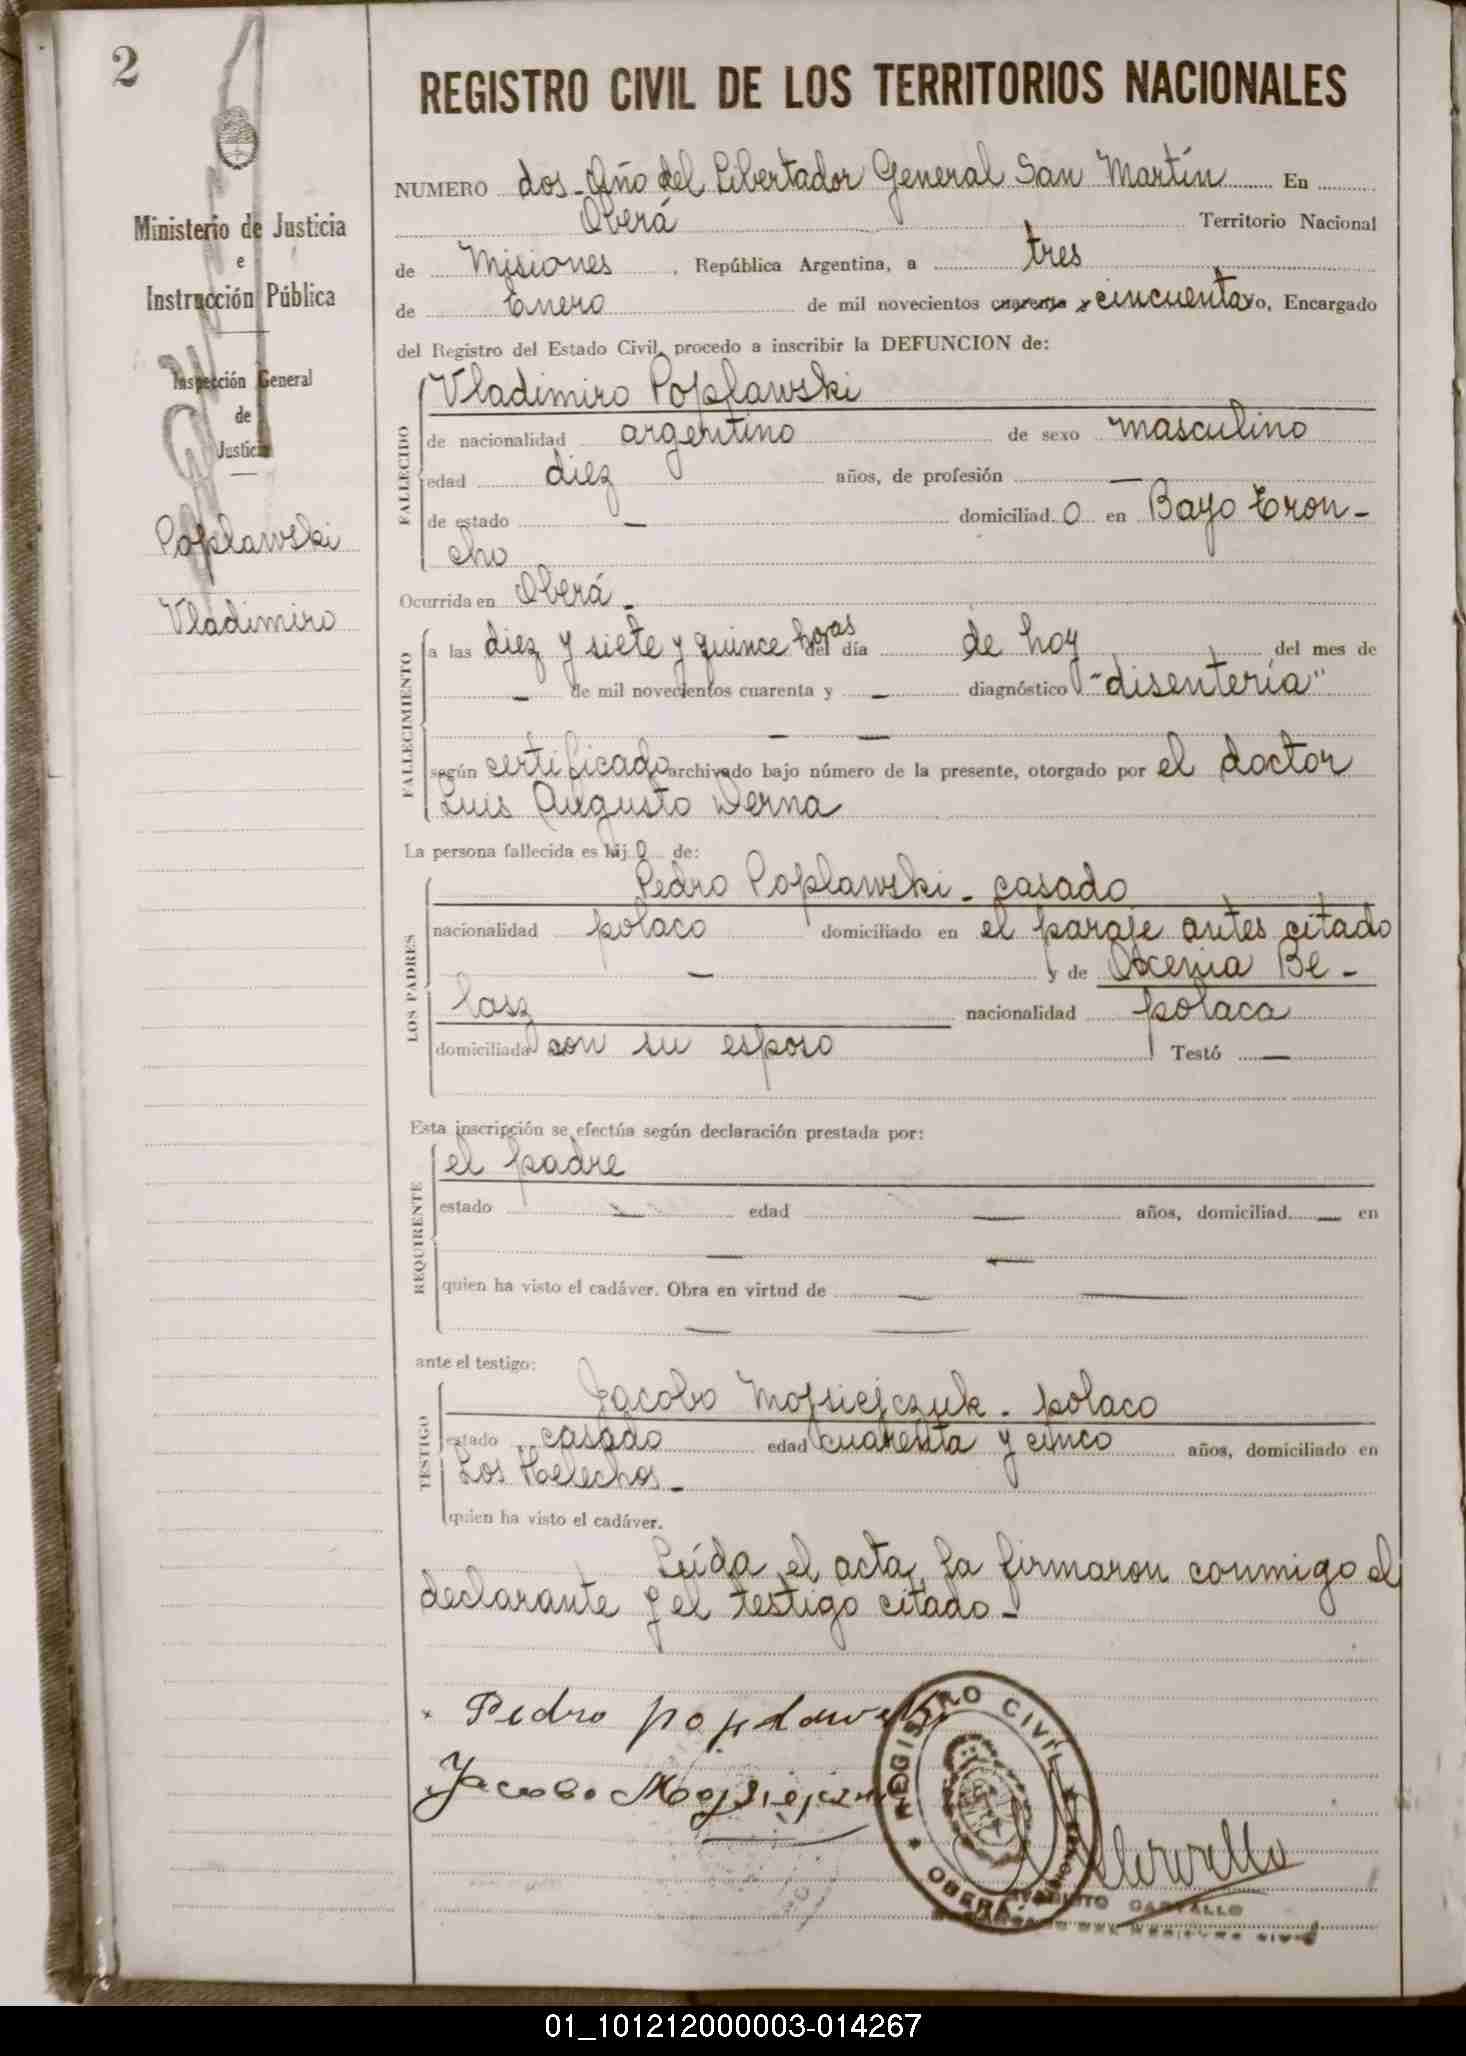 2
REGISTRO CIVIL DE LOS TERRITORIOS NACIONALES
Ministerio de Justicia
e
Instrucción Pública
Inspección General
de
Justicia
Poplawski
Vladimiro
NUMERO dos - Año del Libertador General San Martín En
Oberá Territorio Nacional
de Misiones, República Argentina, a tres
de Enero de mil novecientos cuarenta y cincuenta yo, Encargado
del Registro del Estado Civil, procedo a inscribir la DEFUNCION de:
FALLECIDO
Vladimiro Poplawski
de nacionalidad argentino de sexo masculino
edad diez años, de profesión —
de estado — domiciliad o en Bayo Tron-
cho
Ocurrida en Oberá -
FALLECIMIENTO
a las diez y siete y quince horas del día de hoy del mes de
— de mil novecientos cuarenta y — diagnóstico "disentería"
— —
según certificado archivado bajo número de la presente, otorgado por el doctor
Luis Augusto Derna
La persona fallecida es hij o de:
LOS PADRES
Pedro Poplawski - casado
nacionalidad polaco domiciliado en el paraje antes citado
— y de Oxenia Be-
lasz nacionalidad polaca
domiciliada con su esposo Testó —
Esta inscripción se efectúa según declaración prestada por:
REQUIRENTE
el padre
estado — edad — años, domiciliad — en
— —
quien ha visto el cadáver. Obra en virtud de — —
— —
ante el testigo:
TESTIGO
Jacobo Mojsiejczuk - polaco
estado casado edad cuarenta y cinco años, domiciliado en
Los Helechos -
quien ha visto el cadáver.
Leída el acta, la firmaron conmigo el
declarante y el testigo citado -
Pedro poplawski
Jacobo Mojsiejczuk
REGISTRO CIVIL
OBERÁ
CARVALLO
ENCARGADO DEL REGISTRO CIVIL
01_101212000003-014267